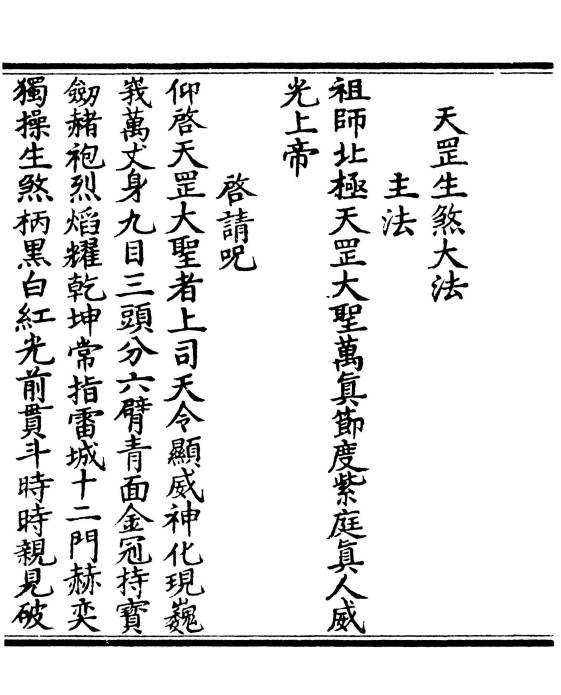 天罡生煞大法
主法
祖師北極天罡大聖萬眞節度紫庭眞人威
光上帝
啓請呪
仰啓天罡大聖者上司天令顯威神化現巍
峩萬丈身九目三頭分六臂青面金冠持寶
劒赭袍烈焰耀乾坤常指雷城十二門赫奕
獨操生煞柄黑白紅光前貫斗時時親見破